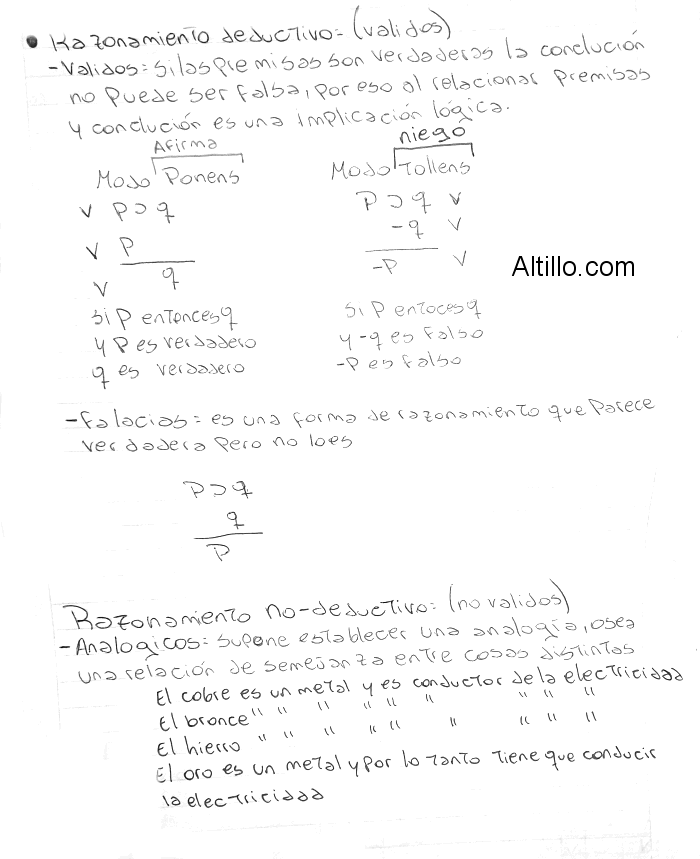 • Razonamiento deductivo: (validos)
- Validos: si las premisas son verdaderas la conclución
no puede ser falsa, por eso al relacionar premisas
y conclución es una implicación lógica.
Afirma
Modo Ponens
v P⊃q
v P
v q
si P entonces q
y P es verdadero
q es verdadero
niego
Modo Tollens
P⊃q v
-q v
-P v
si P entoces q
y -q es falso
-P es falso
Altillo.com
- Falacias: es una forma de razonamiento que parece
verdadera pero no lo es
P⊃q
q
P
Razonamiento no-deductivo: (no validos)
- Analogicos: supone establecer una analogía, osea
una relación de semejanza entre cosas distintas
El cobre es un metal y es conductor de la electricidad
El bronce " " " " " " " " "
El hierro " " " " " " " " "
El oro es un metal y por lo tanto tiene que conducir
la electricidad